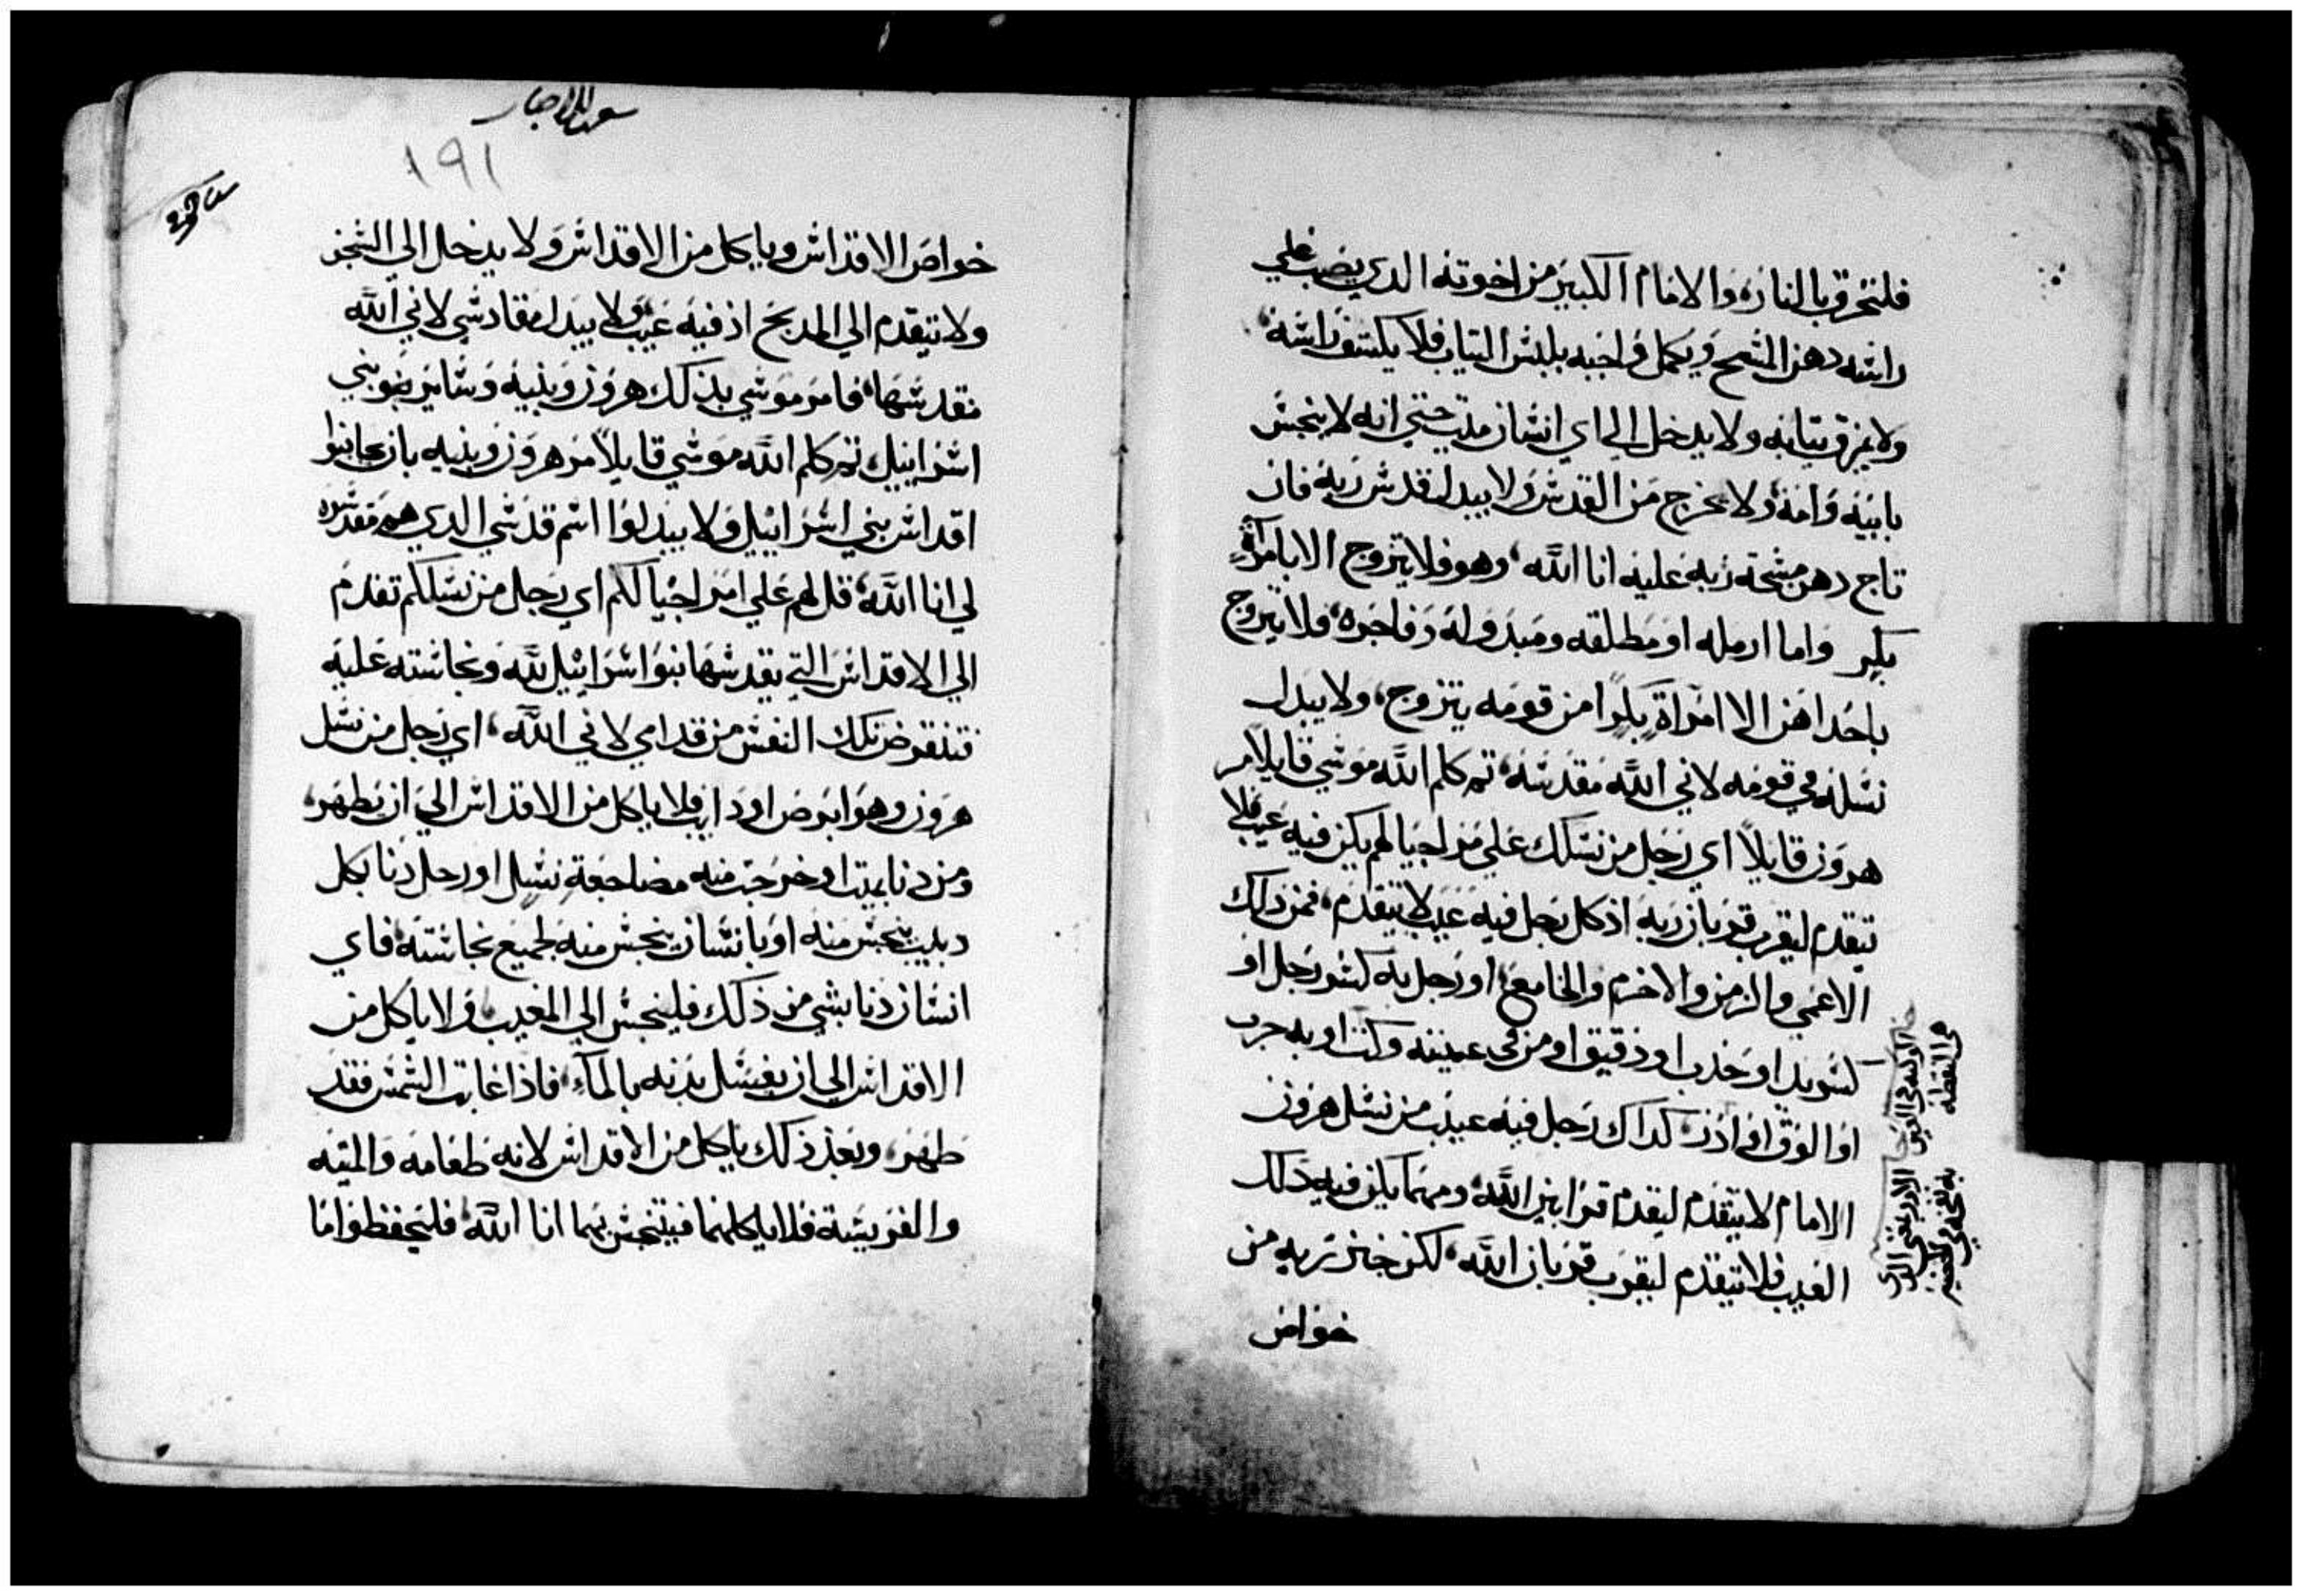 فلتحرق بالنار، والامام الكبير من اخوته الدي يصب علي
راسه دهن المسح ويكمل واجبه بلبس التياب فلا يكشف راسه
ولا يمزق تيابه ولا يدخل الي اي انسان ميت حتي انه لا ينجس
بابيه وامه ولا يخرج من القدس ولا يبدل قدس ربه فان
تاج دهن مسحة ربه عليه انا الله، وهو فلا يتزوج الا بامراة
بكر واما ارمله او مطلقه ومبدوله وفاجره، فلا يتزوج
باحداهن الا امراة بكرا من قومه يتزوج، ولا يبدل
نسله في قومه لاني الله مقدسه، تم كلم الله موسي قايلا مر
هرون قايلا اي رجل من نسلك علي مر اجيالهم يكن فيه عيب فلا
يتقدم ليقرب قربان ربه اذ كل رجل فيه عيب لا يتقدم، فمن ذلك
الاعمي والزمن والاخرم والخامع، او رجل به كسر رجل او
كسر يد او حدب او دقيق او من في عينيه وكت او به جرب
او الوق او ادر، كداك رجل فيه عيب من نسل هرون
الامام لا يتقدم ليقدم قرابين الله، ومهما يكن فيه ذلك
العيب فلا يتقدم ليقرب قربان الله، لكن خبز ربه من
خواص
الوكته في العين
هي النقطه
الادر يعني الذي
به نفخه في
١٩١
خواص الاقداس وياكل من الاقداس ولا يدخل الي السجف
ولا يتقدم الي المدبح اذ فيه عيب ولا يبدل مقادسي لاني الله
مقدسها، فامر موسي بذلك هرون وبنيه وساير بني
اسراييل تم كلم الله موسي قايلا مر هرون وبنيه بان يجانبوا
اقداس بني اسراييل ولا يبدلوا اسم قدسي الدي هم مقدسوه
لي انا الله، قل لهم علي امر اجيالكم اي رجل من نسلكم تقدم
الي الاقداس التي يقدسها بنوا اسراييل لله ونجاسته عليه
فتنقرض تلك النفس من قدامي لاني الله، اي رجل من نسل
هرون وهو ابرص او دايب فلا ياكل من الاقداس الي ان يطهر،
ومن دنا بميت او خرجت منه مضاجعة نسل او رجل دنا بكل
دبيب ينجس منه او بانسان ينجس منه لجميع نجاسته، فاي
انسان دنا بشي من ذلك فلينجس الي المغيب ولا ياكل من
الاقداس الي ان يغسل بدنه بالماء، فاذا غابت الشمس فقد
طهر، وبعد ذلك ياكل من الاقداس لانه طعامه والميته
والفريسة فلا ياكلهما فيتنجس بهما انا الله، فليحفظوا ما